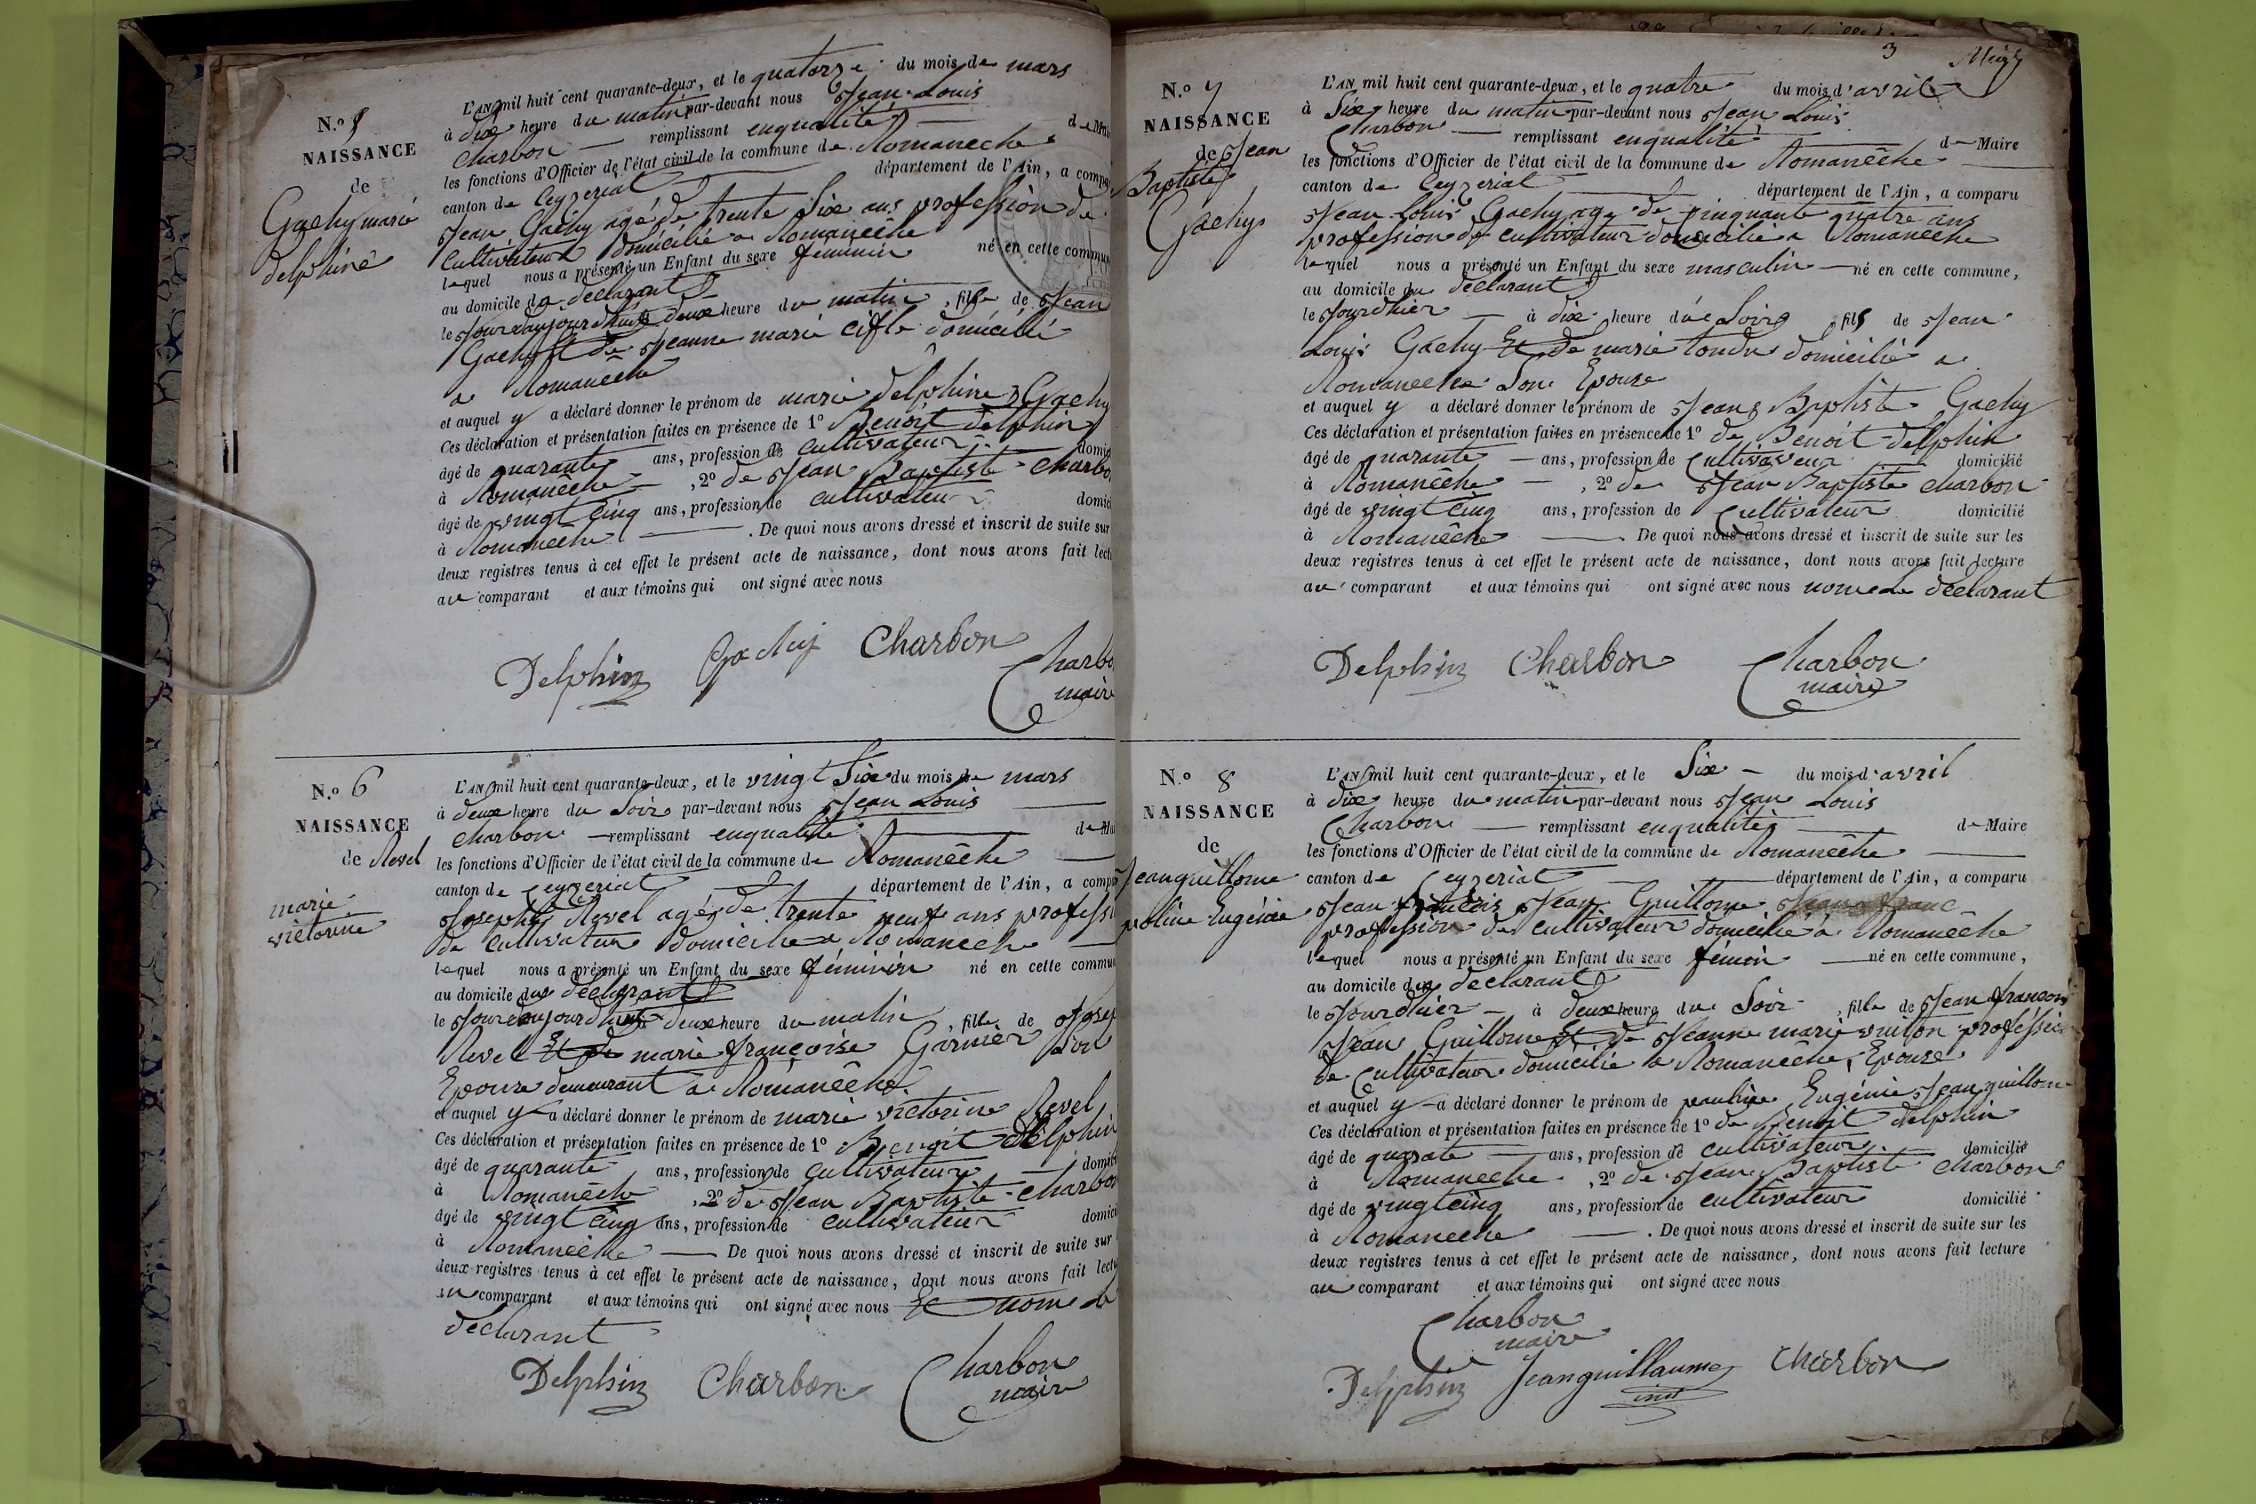 N.º 5
NAISSANCE
de
Gachy marie
delphine
L'AN mil huit cent quarante-deux, et le quatorze du mois de mars
à dix heure du matin par-devant nous Jean Louis
Charbon — remplissant enqualité — de Mai
les fonctions d'Officier de l'état civil de la commune de Romanêche
canton de Ceyzeriat — département de l'Ain, a compa
Jean Gachy agé de trente Six ans profession de
Cultivateur domicilié a Romanêche
lequel nous a présenté un Enfant du sexe feminin né en cette commun
au domicile du déclarant
le Jour daujourdhuis deux heure du matin, fille de Jean
Gachy et de Jeanne marie domicilié
a Romanêche
et auquel y a déclaré donner le prénom de marie Delphine Gachy
Ces déclaration et présentation faites en présence de 1º Benoit delphin
âgé de quarante ans, profession de cultivateur domici
à Romanêche —, 2º de Jean Baptiste Charbo
âgé de vingt cinq ans, profession de cultivateur domici
à Romanêche — . De quoi nous avons dressé et inscrit de suite sur
deux registres tenus à cet effet le présent acte de naissance, dont nous avons fait lect
au comparant et aux témoins qui ont signé avec nous
Delphin Gachy Charbon
Charbo
maire
N.º 6
NAISSANCE
de Revel
marie
victorine
L'AN mil huit cent quarante-deux, et le vingt Six du mois de mars
à deux heure du Soir par-devant nous Jean Louis —
Charbon — remplissant enqualité — de Mai
les fonctions d'Officier de l'état civil de la commune de Romanêche —
canton de Ceyzeriat — département de l'Ain, a compa
Joseph Revel agé de trente neuf ans professi
de Cultivateur domicilié a Romanêche —
lequel nous a présenté un Enfant du sexe féminin né en cette commu
au domicile du déclarant
le Jour daujourdhuis deux heure du matin, fille de Josep
Revel Et de marie françoise Garnier Son
Epouse demeurant a Romanêche
et auquel y a déclaré donner le prénom de marie victorine Revel
Ces déclaration et présentation faites en présence de 1º Benoit Delphin
âgé de quarante ans, profession de cultivateur — domici
à Romanêche, 2º de Jean Baptiste Charbon
âgé de vingt cinq ans, profession de cultivateur domici
à Romanêche — De quoi nous avons dressé et inscrit de suite sur
deux registres tenus à cet effet le présent acte de naissance, dont nous avons fait lectu
au comparant et aux témoins qui ont signé avec nous Et nom le
declarant
Delphin Charbon Charbon
maire
3
N.º 7
NAISSANCE
de Jean
Baptiste
Gachy
L'AN mil huit cent quarante-deux, et le quatre du mois d'avril
à Six heure du matin par-devant nous Jean Louis
Charbon — remplissant enqualité — de Maire
les fonctions d'Officier de l'état civil de la commune de Romanêche —
canton de Ceyzeriat — département de l'Ain, a comparu
Jean Louis Gachy age de cinquante quatre ans
profession de cultivateur domicilié a Romanêche
lequel nous a présenté un Enfant du sexe masculin — né en cette commune,
au domicile du declarant
le Jour dhier — à dix heure du Soir, fils de Jean
Louis Gachy Et de marie Tondu domicilié a
Romaneche Son Epouse
et auquel y a déclaré donner le prénom de Jean Baptiste Gachy
Ces déclaration et présentation faites en présence de 1º de Benoit Delphin
âgé de quarante — ans, profession de Cultivateur domicilié
à Romanêche —, 2º de Jean Baptiste Charbon
âgé de vingt cinq ans, profession de Cultivateur domicilié
à Romanêche — De quoi nous avons dressé et inscrit de suite sur les
deux registres tenus à cet effet le présent acte de naissance, dont nous avons fait lecture
au comparant et aux témoins qui ont signé avec nous nom le déclarant
Delphin Charbon Charbon
maire
N.º 8
NAISSANCE
de
Jeanguillome
poline Eugénie
L'AN mil huit cent quarante-deux, et le Six — du mois d'avril
à dix heure du matin par-devant nous Jean Louis
Charbon — remplissant enqualité — de Maire
les fonctions d'Officier de l'état civil de la commune de Romanêche —
canton de Ceyzeriat — département de l'Ain, a comparu
Jean françois Jean Guillome
profession de cultivateur domicilié a Romanêche
lequel nous a présenté un Enfant du sexe fémin — né en cette commune,
au domicile du declarant
le Jour dhier — à deux heure du Soir, fille de Jean françois
Jean Guillome Et de Jeanne marie vuiton proféssion
de Cultivateur domicilié a Romanêche Epouse
et auquel y a déclaré donner le prénom de pauline Eugénie Jean guillome
Ces déclaration et présentation faites en présence de 1º de Benoit delphin
âgé de quarate — ans, profession de cultivateur domicilié
à Romaneche, 2º de Jean Baptiste Charbon
âgé de vingt cinq ans, profession de cultivateur domicilié
à Romaneche — . De quoi nous avons dressé et inscrit de suite sur les
deux registres tenus à cet effet le présent acte de naissance, dont nous avons fait lecture
au comparant et aux témoins qui ont signé avec nous
Charbon
maire
Delphin Jeanguillaume Charbon